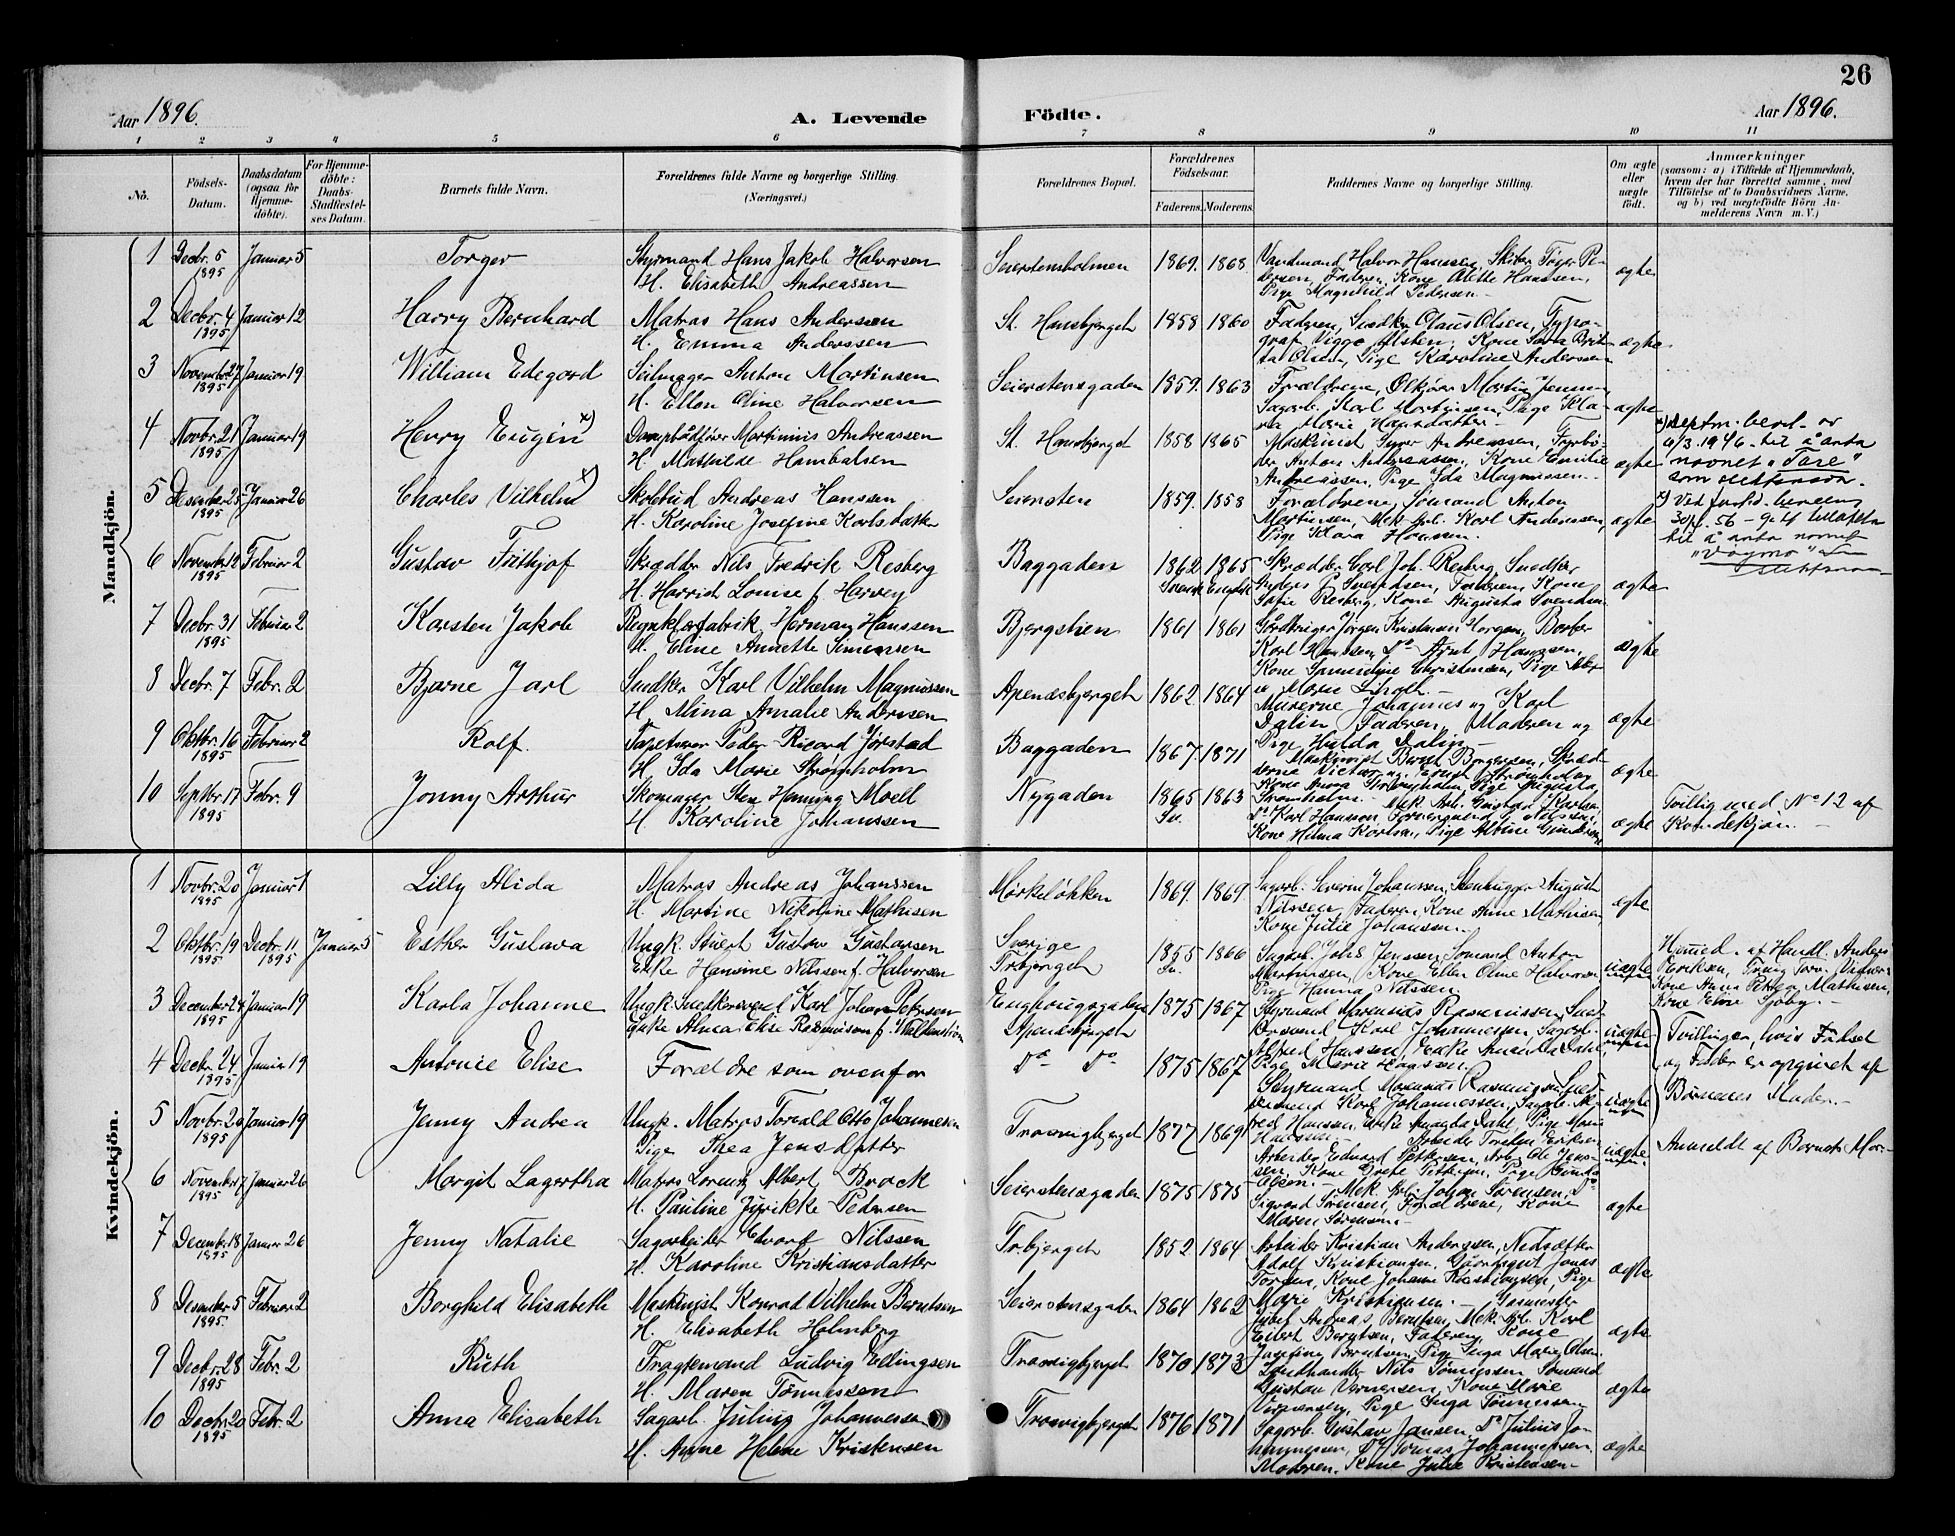 26
Aar 1896. A. Levende Födte. Aar 1896.
1 2 3 4 5 6 7 8 9 10 11
No. Födsels-Datum. Daabsdatum (ogsaa för Hjemme-döbte). For Hjemme-döbte: Daabs-Stadfæstel-ses Datum. Barnets fulde Navn. Forældrenes fulde Navne og borgerlige Stilling. (Næringsvei.) Forældrenes Bopæl. Forældrenes Födselsaar. Faderens. Moderens. Faddernes Navne og borgerlige Stilling. Om ægte eller uægte födt. Anmærkninger (saasom: a) i Tilfælde af Hjemmedaab, hvem der har forrettet samme, med Tilföielse af to Daabsvidners Navne, og b) ved uægtefödte Börn An-melderens Navn m. V.)
Mandkjön.
1 Decbr. 5 1895 Januar 5 Torger Styrmand Hans Jakob Halvorsen
H. Elisabeth Andreassen
Seierstensholmen 1869. 1868 Vandmand Halvor Hanssen,
Pedersen, Faderen, Kone Alette Hanssen,
Pige Magnhild Pedersen. ægte
2 Decbr. 4 1895 Januar 12 Harry Bernhard Matros Hans Anderssen
H. Emma Anderssen
St. Hansbjerget 1858 1860 Faderen, Snedker Olaus Olsen, Typo-
graf Olsen, Kone
Olsen, Pige Karoline Anderssen ægte
3 November 27 1895 Januar 19 William Edegard Seilmager Anton Martinsen
H. Ellen Oline Halvorsen
Seierstensgaden 1859. 1863 Forældrene, Martin Jensen,
Sagarb. Karl Martinsen, Pige Kla-
ra Marie Hansdatter ægte
4 Novbr. 21 1895 Januar 19 Henry Eugen x) Dampbådfører Martinius Andreassen
H. Mathilde Hambalsen
St. Hansbjerget 1858 1865 Maskinist Andreassen, Fyrbö-
der Anton Andreassen, Kone Emilie
Andreassen, Pige Ida Magnussen. ægte
3. 1946 til å anta
navnet "Tare"
som slektsnavn.
5 Desember 25 1895 Januar 26 Charles Vilhelm x) Skolebud Andreas Hanssen
H. Karoline Josefine Karlsdatter
Seiersten 1859. 1858 Forældrene, Sömand Anton
Martinsen, Mek. Arb. Karl Anderssen,
Pige Klara Hanssen. ægte
x) Ved
56 til å anta navnet
6 November 12 1895 Februar 2 Gustav Frithjof Skrædder Nils Fredrik Resberg
H. Harriet Louise f. Harvey
Baggaden 1862 Svensk 1865 Engelsk Skrædder Carl Joh. Resberg, Snedker
Anders P. Svendsen, Faderen, Kone
Sofie Resberg, Kone Augusta Svendsen ægte
7 Decbr. 31 1895 Februar 2 Karsten Jakob Herman Hanssen
H. Eline Annette Simensen
Bjergstien 1861 1861 Gårdbruger Jörgen Kristiansen Horgen, Barber
Karl Hanssen, Do Arnt Hanssen,
Kone Christensen, Pige
Marie ægte
8 Decbr. 7 Febr. 2 Bjarne Jarl Snedker Karl Vilhelm Magnussen
H. Mina Amalie Anderssen
Apenæsbjerget 1862 1864 Murerne Johannes og Karl
Dalin, Faderen, Moderen og
Pige Hulda Dalin ægte
9 Oktbr. 16 1895 Februar 2 Rolf. Tapetserer Peder Ricard Jörstad
H. Ida Marie Strømholm
Baggaden 1867. 1871 Maskinist Bernt Børgersen, Skræd-
derne Victor og Ernst Strømholm
Kone Anna Strømholm, Pige Augusta
Strømholm. ægte
10 Septbr. 17 1895 Febr. 9 Jonny Arthur Skomager Sten Henning Moell
H. Karoline Johanssen
Nygaden 1865 Sv. 1863 Mek. Arb. Gustav Karlsen,
Do Karl Hansson, Formermand G. Nilssen,
Kone Hilma Karlsen, Pige Albine Gundersen ægte
Tvilling med No 12 af
Kvindekjön. —
Kvindekjön.
1 Novbr. 20 1895 Januar 1 Lilly Alida Matros Andreas Johanssen
H. Martine Nikoline Mathisen
Mørkeløkken 1869. 1869. Sagarb. Severin Johanssen, Stenhugger August
Nilssen, Faderen, Kone Anne Mathisen,
Kone Julie Johanssen. ægte
2 Oktbr. 19 1895 Decbr. 11 1895 Januar 5 Esther Gustava Ungk. Stuert Gustav Gustavsen
Enke Hansine Nilssen f. Halvorsen
Sverige
Trbjerget 1855 Sv. 1866 Sagarb. Johs Jenssen, Sömand Anton
Martinsen, Kone Ellen Oline Halvorsen
Pige Hanna Nilssen. uægte
Hjemmed. af Handl. Anders
Eriksen, Vidner:
Kone Anna Mathisen,
Kone Eline Sjöby. —
3 December 24 1895 Januar 19 Karla Johanne Ungk. Snedkersvend Karl Johan Petersen
Enke Alma Elise Rasmussen f. Wallenstein
Enghougsgaden
Apenæsbjerget 1875 1867 Styrmand Marenius Rasmussen, Sned-
kersvend Karl Johannessen, Sagarb.
Alfred Hanssen, Enke Amanda Dahl,
Pige Marie Hanssen. uægte
Tvillinger, hvis Födsel
og Fader er opgivet af
Börnenes Moder. —
4 Decbr. 24 1895 Januar 19 Antonie Elise Forældre som ovenfor
Do Do 1875 1867 Styrmand Marenius Rasmussen, Sned-
kersvend Karl Johannessen, Sagarb. Al-
fred Hanssen, Enke Amanda Dahl, Pige Marie
Hanssen. uægte
5 Novbr. 20 1895 Januar 19 Jenny Andrea Ungk. Matros Torvald Otto Johannesen
Pige Thea Jensdatter
Trosvigbjerget 1877 1869 Arbeider Torsten Eriksen
Arbeider Edvard Pettersen, Arb. Ole Jens-
sen, Kone Grete Pettersen, Pige Gunda
Olsen. uægte
Anmeldt af Barnets Mor. —
6 November 17 1895 Januar 26 Margit Lagertha Matros Lorentz Albert Brock
H. Pauline Jyrikke Pedersen
Seierstensgaden 1875 1875 Mek. Arb. Johan Sørensen, Do
Sigvard Sørensen, Forældrene, Kone
Maren Sørensen. ægte
7 December 18 1895 Januar 26 Jenny Natalie Sagarbeider Edvard Nilssen
H. Karoline Kristiansdatter
Trbjerget 1852 1864 Arbeider Kristian Anderssen,
Adolf Kristiansen, Gaardsgut Jonas
Torgersen, Kone Johanne Kristiansen, Pige
Marie Kristiansen. ægte
8 Desember 5 1895 Februar 2 Borghild Elisabeth Maskinist Konrad Vilhelm Berntsen
H. Elisabeth Holmberg
Seierstensgaden 1864 1862 Gasmester
Andreas Berntsen, Mek. Arb. Karl
Eilert Berntsen, Faderen, Kone
Josefine Berntsen, Pige Inga Marie Olsen ægte
9 Decbr. 28 1895 Febr. 2 Ruth Fragtemand Ludvig Ellingsen
H. Maren Tönnessen
Trosvigbjerget 1870 1873 Landhandler Nils Tönnessen, Sömand
Gustav Vernersen, Kone Marie
Vernersen, Pige Inga Tönnessen ægte
10 Decbr. 20 1895 Febr. 2 Anna Elisabeth Sagarb. Julius Johannessen
H. Anne Helene Kristensen
Trosvigbjerget 1876 1871 Sagarb. Gustav Jansen, Do Julius Jo-
hannessen, Do Tomas Johannessen,
Moderen, Kone Julie Kristensen. — ægte